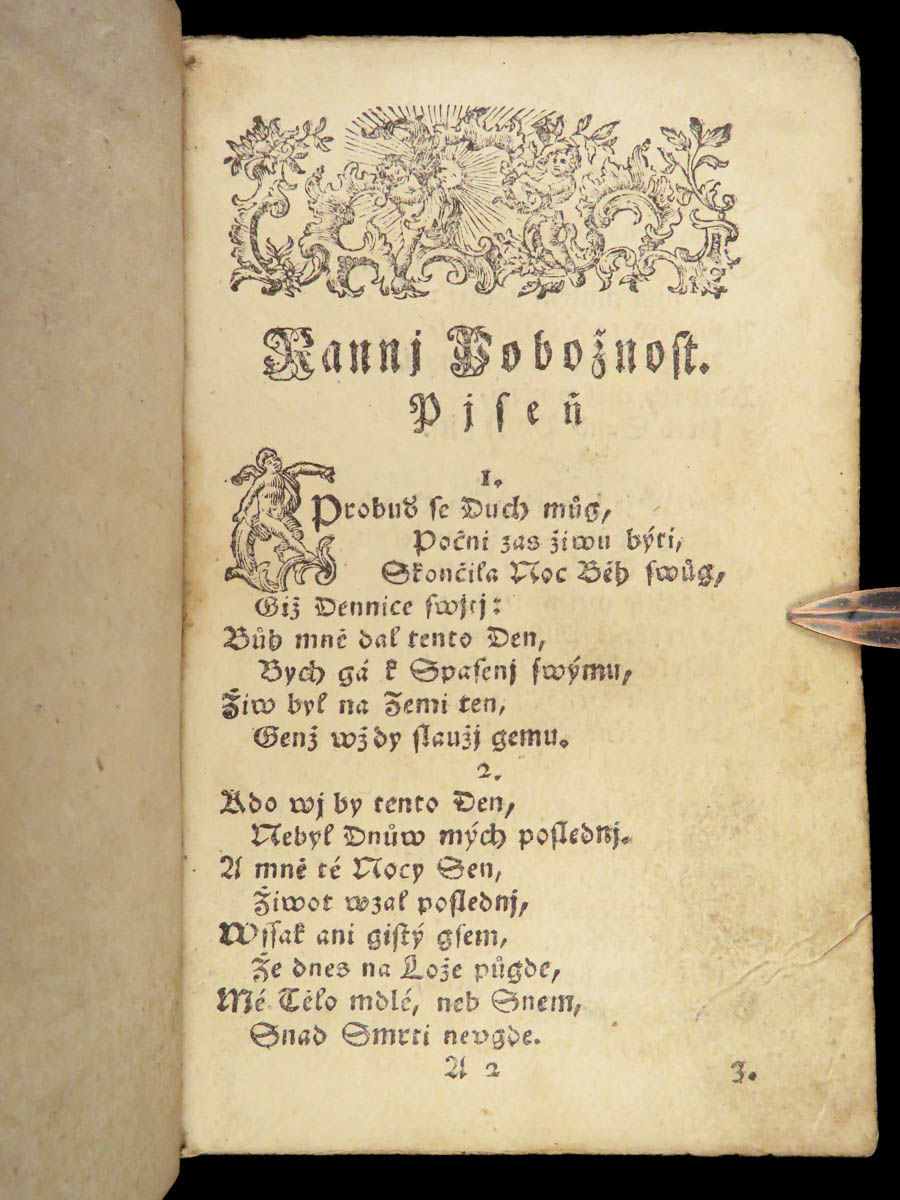 Rannj Pobožnoſt.
Pjſeň
1.
Probuď ſe Duch můg,
Počni zas žiwu býti,
Skončila Noc Běh ſwůg,
Giž Dennice ſwjtj:
Bůh mně dal tento Den,
Bych gá k Spaſenj ſwýmu,
Žiw byl na Zemi ten,
Genž wždy ſlaužj gemu.
2.
Kdo wj by tento Den,
Nebyl Dnůw mých poſlednj.
A mně té Nocy Sen,
Žiwot wzal poſlednj,
Wſſak ani giſtý gſem,
Že dnes na Lože půgde,
Mé Tělo mdlé, neb Snem,
Snad Smrti nevgde.
A 2 3.